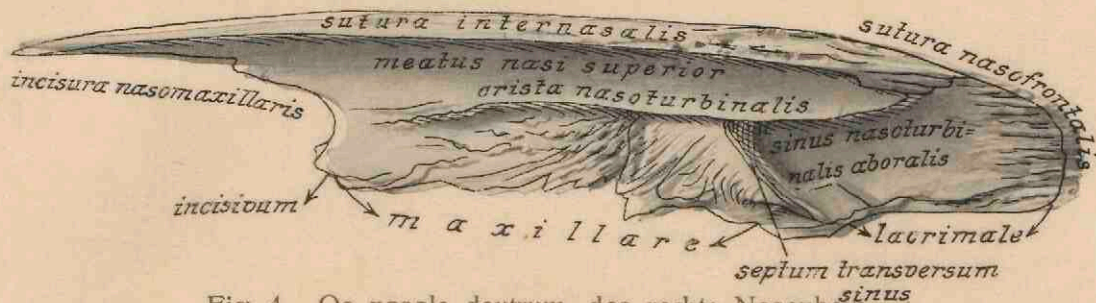 sutura internasalis
sutura nasofrontalis
meatus nasi superior
incisura nasomaxillaris
crista nasoturbinalis
sinus nasoturbi=
nalis aboralis
incisivum
maxillare
lacrimale
septum transversum
sinus
Fig. 4. Os nasale dextrum, das rechte